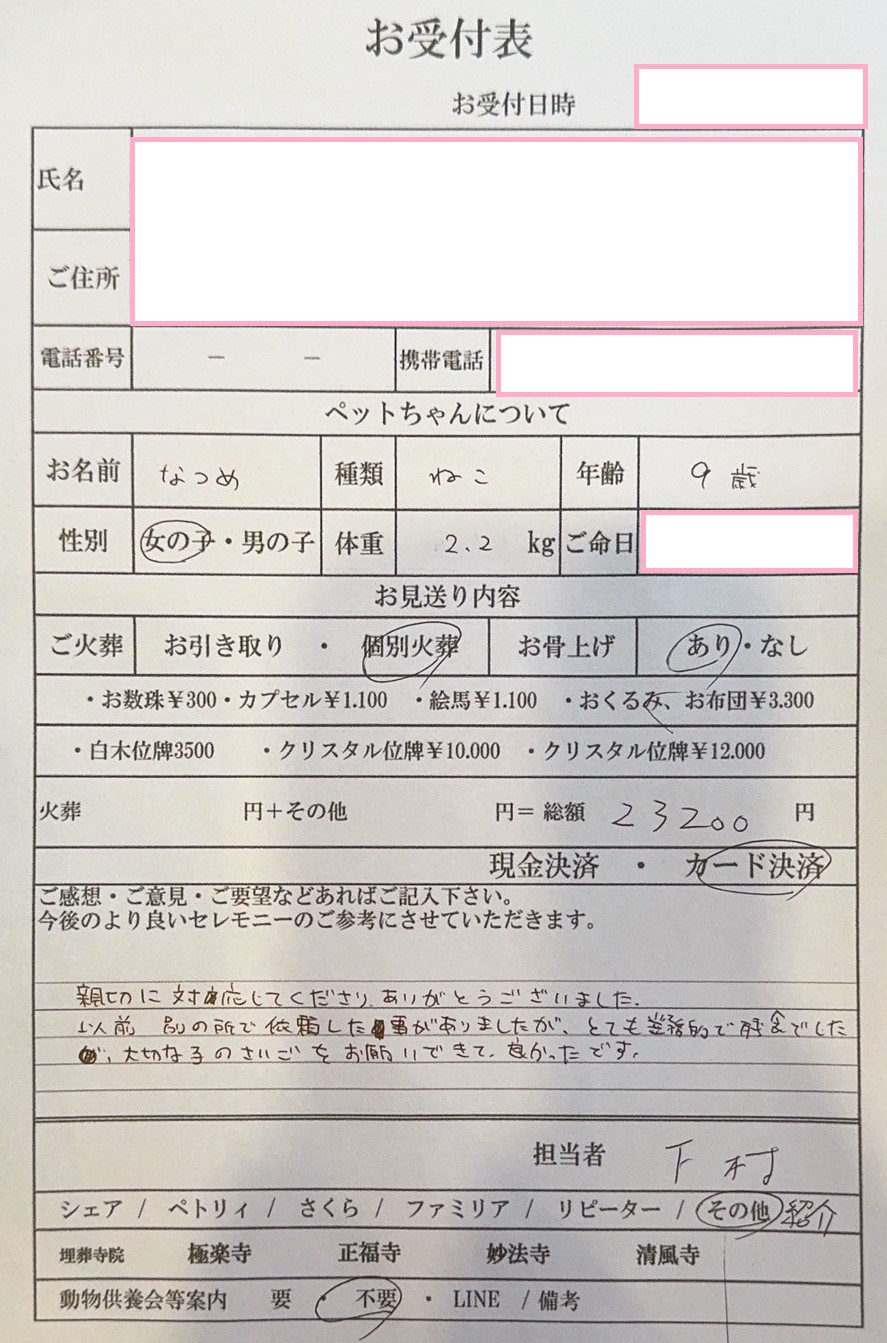 お受付表
お受付日時
氏名
ご住所
電話番号 － － 携帯電話
ペットちゃんについて
お名前 なつめ 種類 ねこ 年齢 9歳
性別 女の子・男の子 体重 2.2 kg ご命日
お見送り内容
ご火葬 お引き取り ・ 個別火葬 お骨上げ あり・なし
・お数珠¥300・カプセル¥1.100 ・絵馬¥1.100 ・おくるみ、お布団¥3.300
・白木位牌3500 ・クリスタル位牌¥10.000 ・クリスタル位牌¥12.000
火葬 円＋その他 円＝ 総額 23200 円
現金決済 ・ カード決済
ご感想・ご意見・ご要望などあればご記入下さい。
今後のより良いセレモニーのご参考にさせていただきます。
親切に対応してくださり、ありがとうございました。
以前 別の所で依頼した事がありましたが、とても業務的で残念でした
が、大切な子のさいごをお願いできて、良かったです。
担当者 下村
シェア / ペトリィ / さくら / ファミリア / リピーター / その他 紹介
埋葬寺院 極楽寺 正福寺 妙法寺 清風寺
動物供養会等案内 要 ・ 不要 ・ LINE / 備考